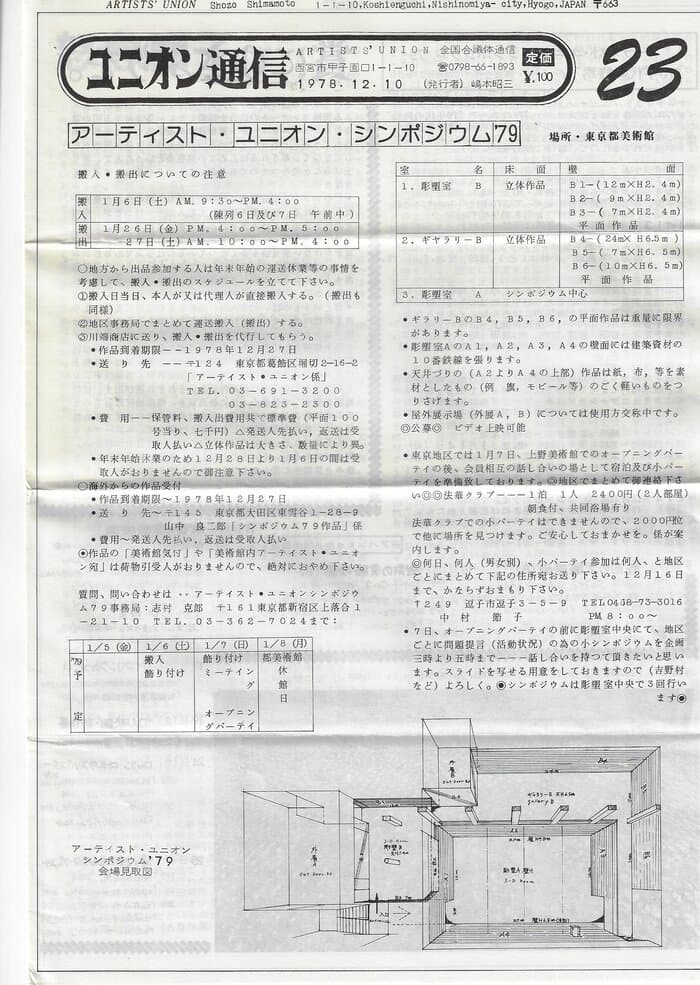 ARTISTS' UNION Shozo Shimamoto 1-1-10,Koshienguchi,Nishinomiya-city,Hyogo,JAPAN 〒663
ユニオン通信
ARTISTS'UNION 全国会議体通信
西宮市甲子園口1-1-10 ☎0798-66-1893
1978.12.10 (発行者)嶋本昭三
定価
¥100
23
アーティスト・ユニオン・シンポジウム'79
場所・東京都美術館
搬入・搬出についての注意
搬入 1月6日(土)AM.9:30~PM.4:00
(陳列6日及び7日 午前中)
搬出 1月26日(金)PM.4:00~PM.5:00
27日(土)AM.10:00~PM.4:00
○地方から出品参加する人は年末年始の運送休業等の事情を
考慮して、搬入・搬出のスケジュールを立てて下さい。
①搬入日当日、本人が又は代理人が直接搬入する。(搬出も
同様)
②地区事務局でまとめて運送搬入(搬出)する。
③川端商店に送り、搬入・搬出を代行してもらう。
・作品到着期限--1978年12月27日
・送り先--〒124 東京都葛飾区堀切2-16-2
「アーティスト・ユニオン係」
TEL.03-691-3200
03-823-2300
・費用--保管料、搬入出費用共で標準費(平面100
号当り、七千円)△発送人先払い,返送は受
取人払い△立体作品は大きさ、数量により異。
・年末年始休業のため12月28日より1月6日の間は受
取人がおりませんので御注意下さい。
○海外からの作品受付
・作品到着期限~1978年12月27日
・送り先~〒145 東京都大田区東雪谷1-28-9
山中 良二郎「シンポジウム79作品」係
・費用~発送人先払い,返送は受取人払い
◉作品の「美術館気付」や「美術館内アーティスト・ユニオ
ン宛」は荷物引受人がおりませんので、絶対におやめ下さい。
質問、問い合わせは‥アーティスト・ユニオンシンポジウ
ム79事務局:志村 克郎 〒161東京都新宿区上落合1
-21-10 TEL.03-362-7024まで:
1/5(金) 1/6(土) 1/7(日) 1/8(月)
'79予定
搬入
飾り付け
飾り付け
ミーティング
オープニングパーテイ
都美術館
休館日
室名 床面 壁面
1.彫塑室 B 立体作品 B1-(12m×H2.4m)
B2-(9m×H2.4m)
B3-(7m×H2.4m)
平面作品
2.ギヤラリーB 立体作品 B4-(24m×H6.5m)
B5-(7m×H6.5m)
B6-(10m×H6.5m)
平面作品
3.彫塑室 A シンポジウム中心
・ギラリーBのB4,B5,B6,の平面作品は重量に限界
があります。
・彫塑室AのA1,A2,A3,A4の壁面には建築資材の
10番鉄線を張ります。
・天井づりの(A2よりA4の上部)作品は紙,布,等を素
材としたもの(例 旗,モビール等)のごく軽いものをつ
りさげます。
・屋外展示場(外展A,B)については使用方交称中です。
◎公募◎ ビデオ上映可能
・東京地区では1月7日、上野美術館でのオープニングパー
テイの後、会員相互の話し合いの場として宿泊及び小パー
テイを準備致しております。◎地区でまとめて御連絡下さ
い◎◎法華クラブ---1泊 1人 2400円(2人部屋)
朝食付、共同浴場有り
法華クラブでの小パーテイはできませんので、2000円位
で他に場所を見つけます。ご安心しておまかせを。係が案
内します。
◎何日、何人(男女別)、小パーテイ参加は何人、と地区
ごとにまとめて下記の住所宛お送り下さい。12月16日
まで、かならずおまもり下さい。
〒249 逗子市逗子3-5-9 TEL0468-73-3016
中村 節子 PM8:00~
・7日、オープニングパーテイの前に彫塑室中央にて、地区
ごとに問題提言(活動状況)の為の小シンポジウムを企画
三時より五時まで---話し合いを持って頂きたいと思い
ます。スライドを写せる用意をしておきますので(吉野村
など)よろしく。◉シンポジウムは彫塑室中央で3回行い
ます◉
アーティスト・ユニオン
シンポジウム'79
会場見取図
ギャラリーB
gallery.B
B4
入口
A4